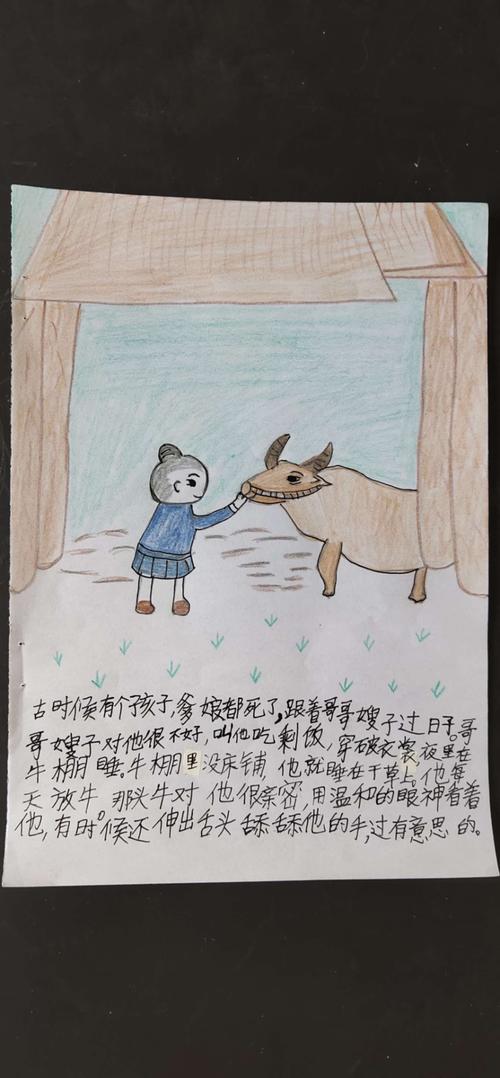 古时候有个孩子,爹娘都死了,跟着哥哥嫂子过日子。哥
哥嫂子对他很不好,叫他吃剩饭,穿破衣裳,夜里在
牛棚睡。牛棚里没床铺,他就睡在干草上。他每
天放牛。那头牛对他很亲密,用温和的眼神看着
他,有时候还伸出舌头舔舔他的手,过有意思的。